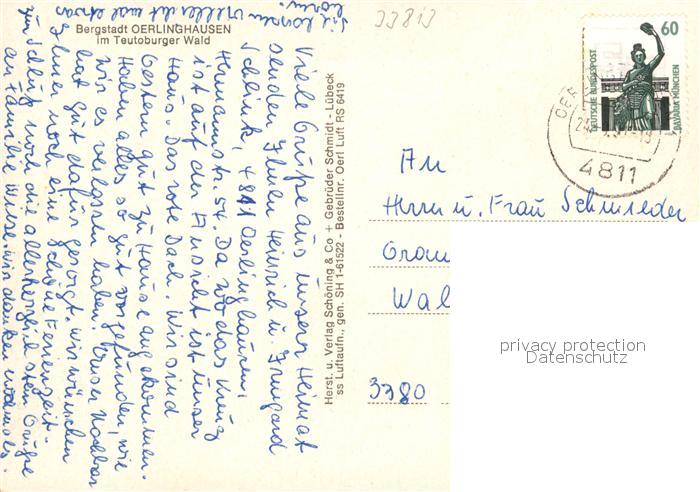 33813
Bergstadt OERLINGHAUSEN
im Teutoburger Wald
Viele Grüße aus unserer Heimat
senden Ihnen Heinrich u. Irmgard
Schlink, 4811 Oerlinghausen,
Hermannstr. 54. Da wo das Kreuz
ist auf der Ansicht ist unser
Haus. Das rote Dach. Wir sind
Gestern gut zu Hause angekommen.
Haben alles so gut vorgefunden, wie
wir es verlassen haben. Unser Nachbar
hat gut dafür gesorgt. Wir wünschen
Ihnen noch eine schöne Ferienzeit.
zum Schluß noch die allerherzlichsten Grüße
an Familie Wiese. Wir danken nochmals.
Sie lassen vielleicht mal etwas
hören.
Herst. u. Verlag Schöning & Co + Gebrüder Schmidt - Lübeck
ss Luftaufn., gen. SH 1-61522 - Bestellnr. Oerl Luft RS 6419
60
DEUTSCHE BUNDESPOST
BAVARIA MÜNCHEN
OER
4811
An
Herrn u. Frau Schmieder
3380
privacy protection
Datenschutz